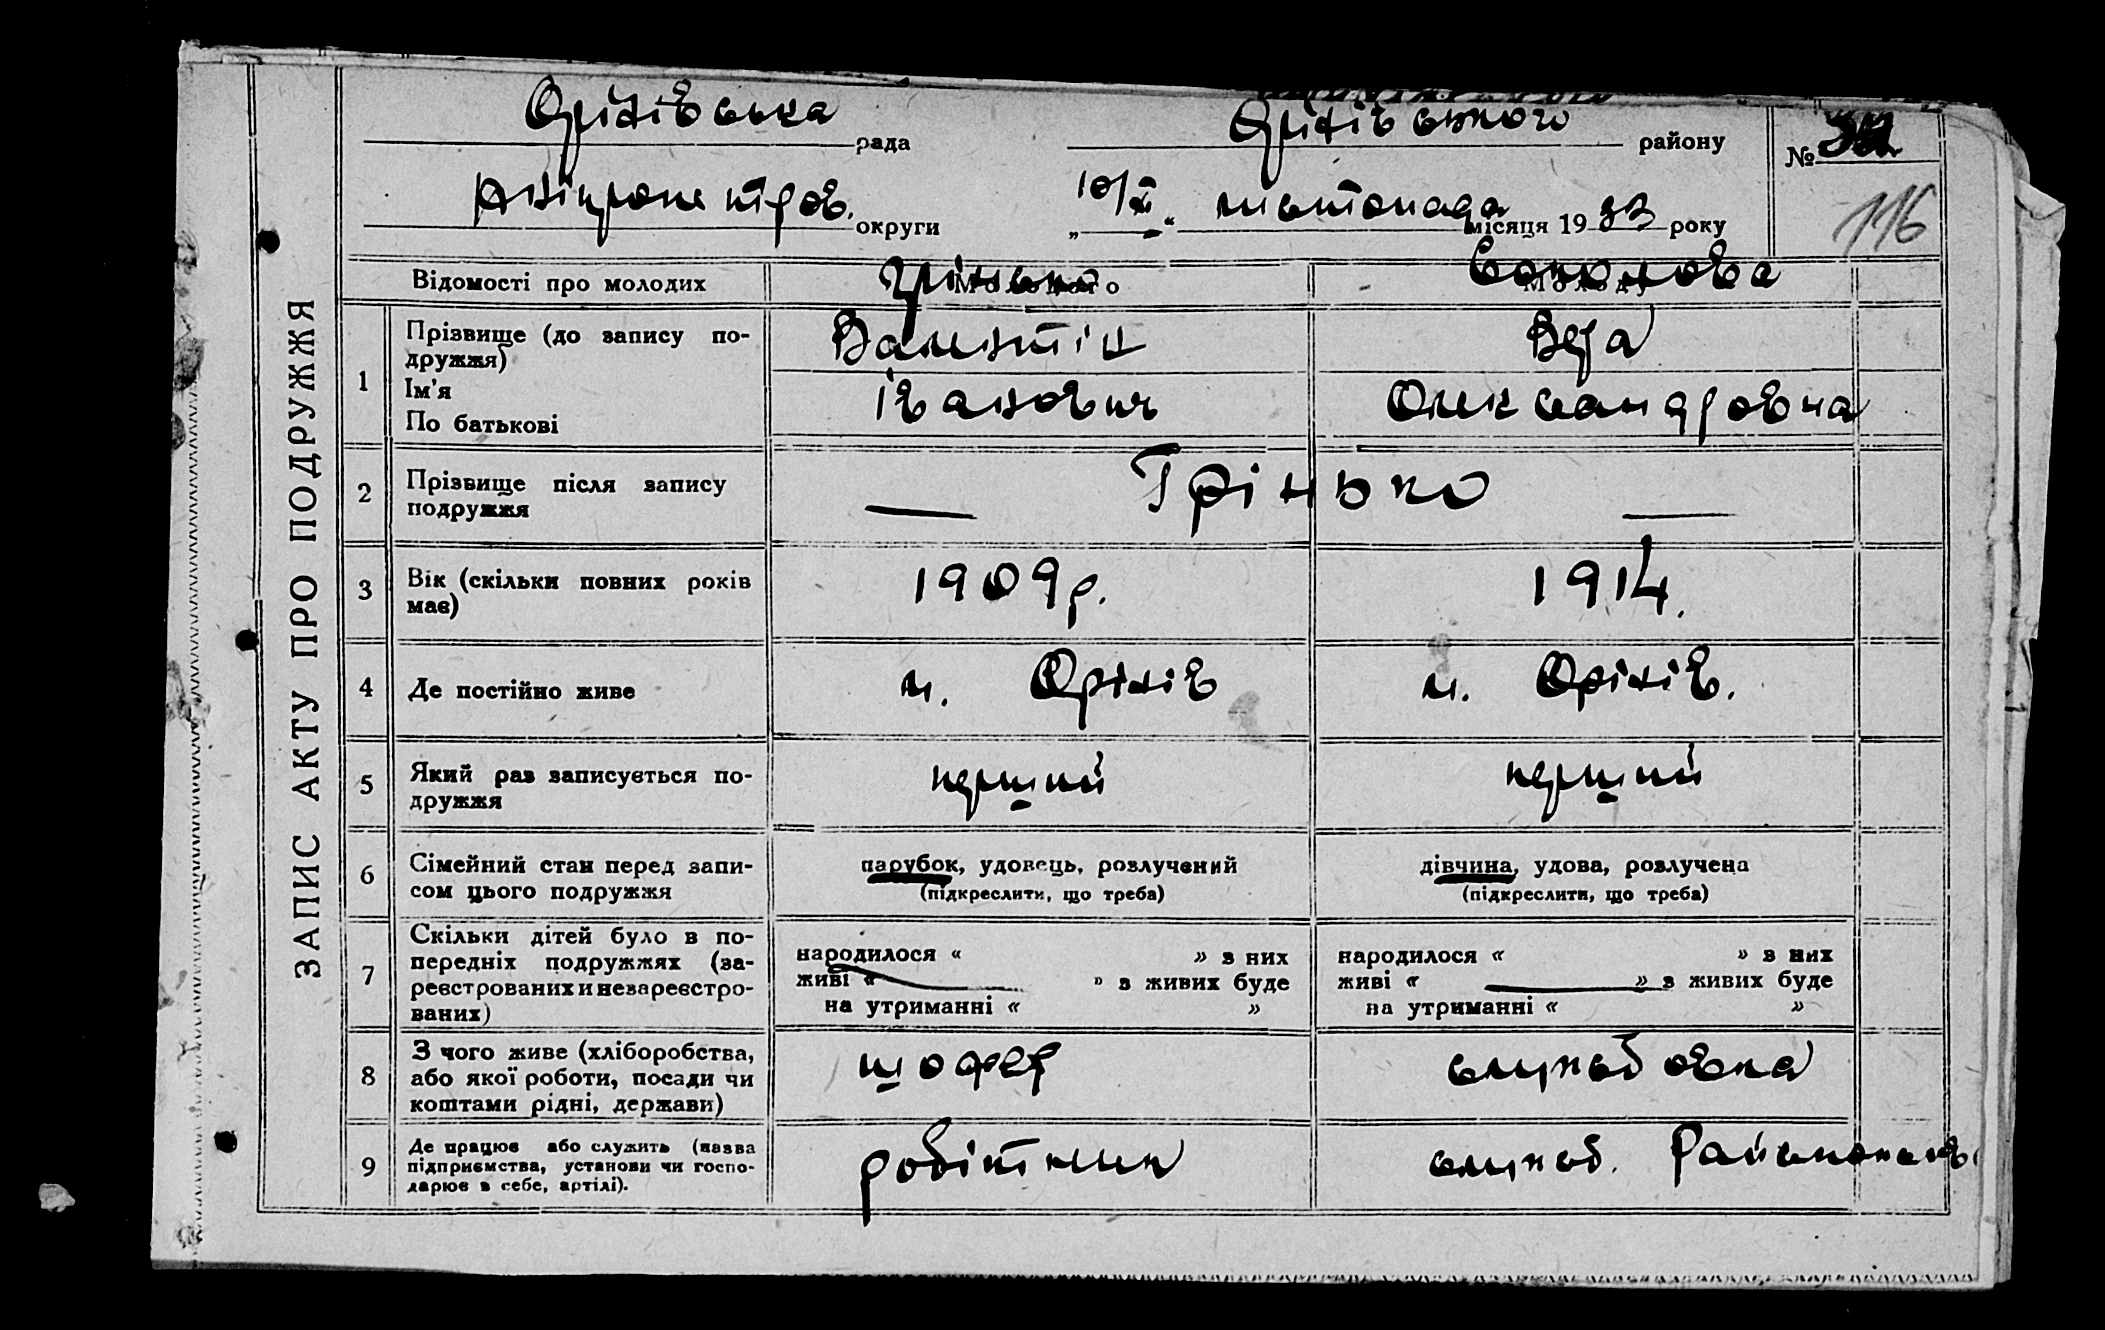 ЗАПИС АКТУ ПРО ПОДРУЖЖЯ
Оріхівська рада Оріхівського району №
Дніпропетров. округи „10/XI“ листопада місяця 1933 року 116
Відомості про молодих Грінько Молодого Молоду
1 Прізвище (до запису подружжя) Валентін Вера
Ім'я
По батькові Іванович Олександровна
2 Прізвище після запису подружжя — Грінько —
3 Вік (скільки повних років має) 1909 р. 1914.
4 Де постійно живе м. Оріхів м. Оріхів.
5 Який раз записується подружжя перший перший
6 Сімейний стан перед записом цього подружжя парубок, удовець, розлучений дівчина, удова, розлучена
(підкреслити, що треба) (підкреслити, що треба)
7 Скільки дітей було в попередніх подружжях (зареєстрованих и незареєстрованих) народилося « » з них народилося « » з них
живі « » з живих буде живі « » з живих буде
на утриманні « » на утриманні « »
8 З чого живе (хліборобства, або якої роботи, посади чи коштами рідні, держави) шофер службовка
9 Де працює або служить (назва підприємства, установи чи господарює в себе, артілі). робітник служб.